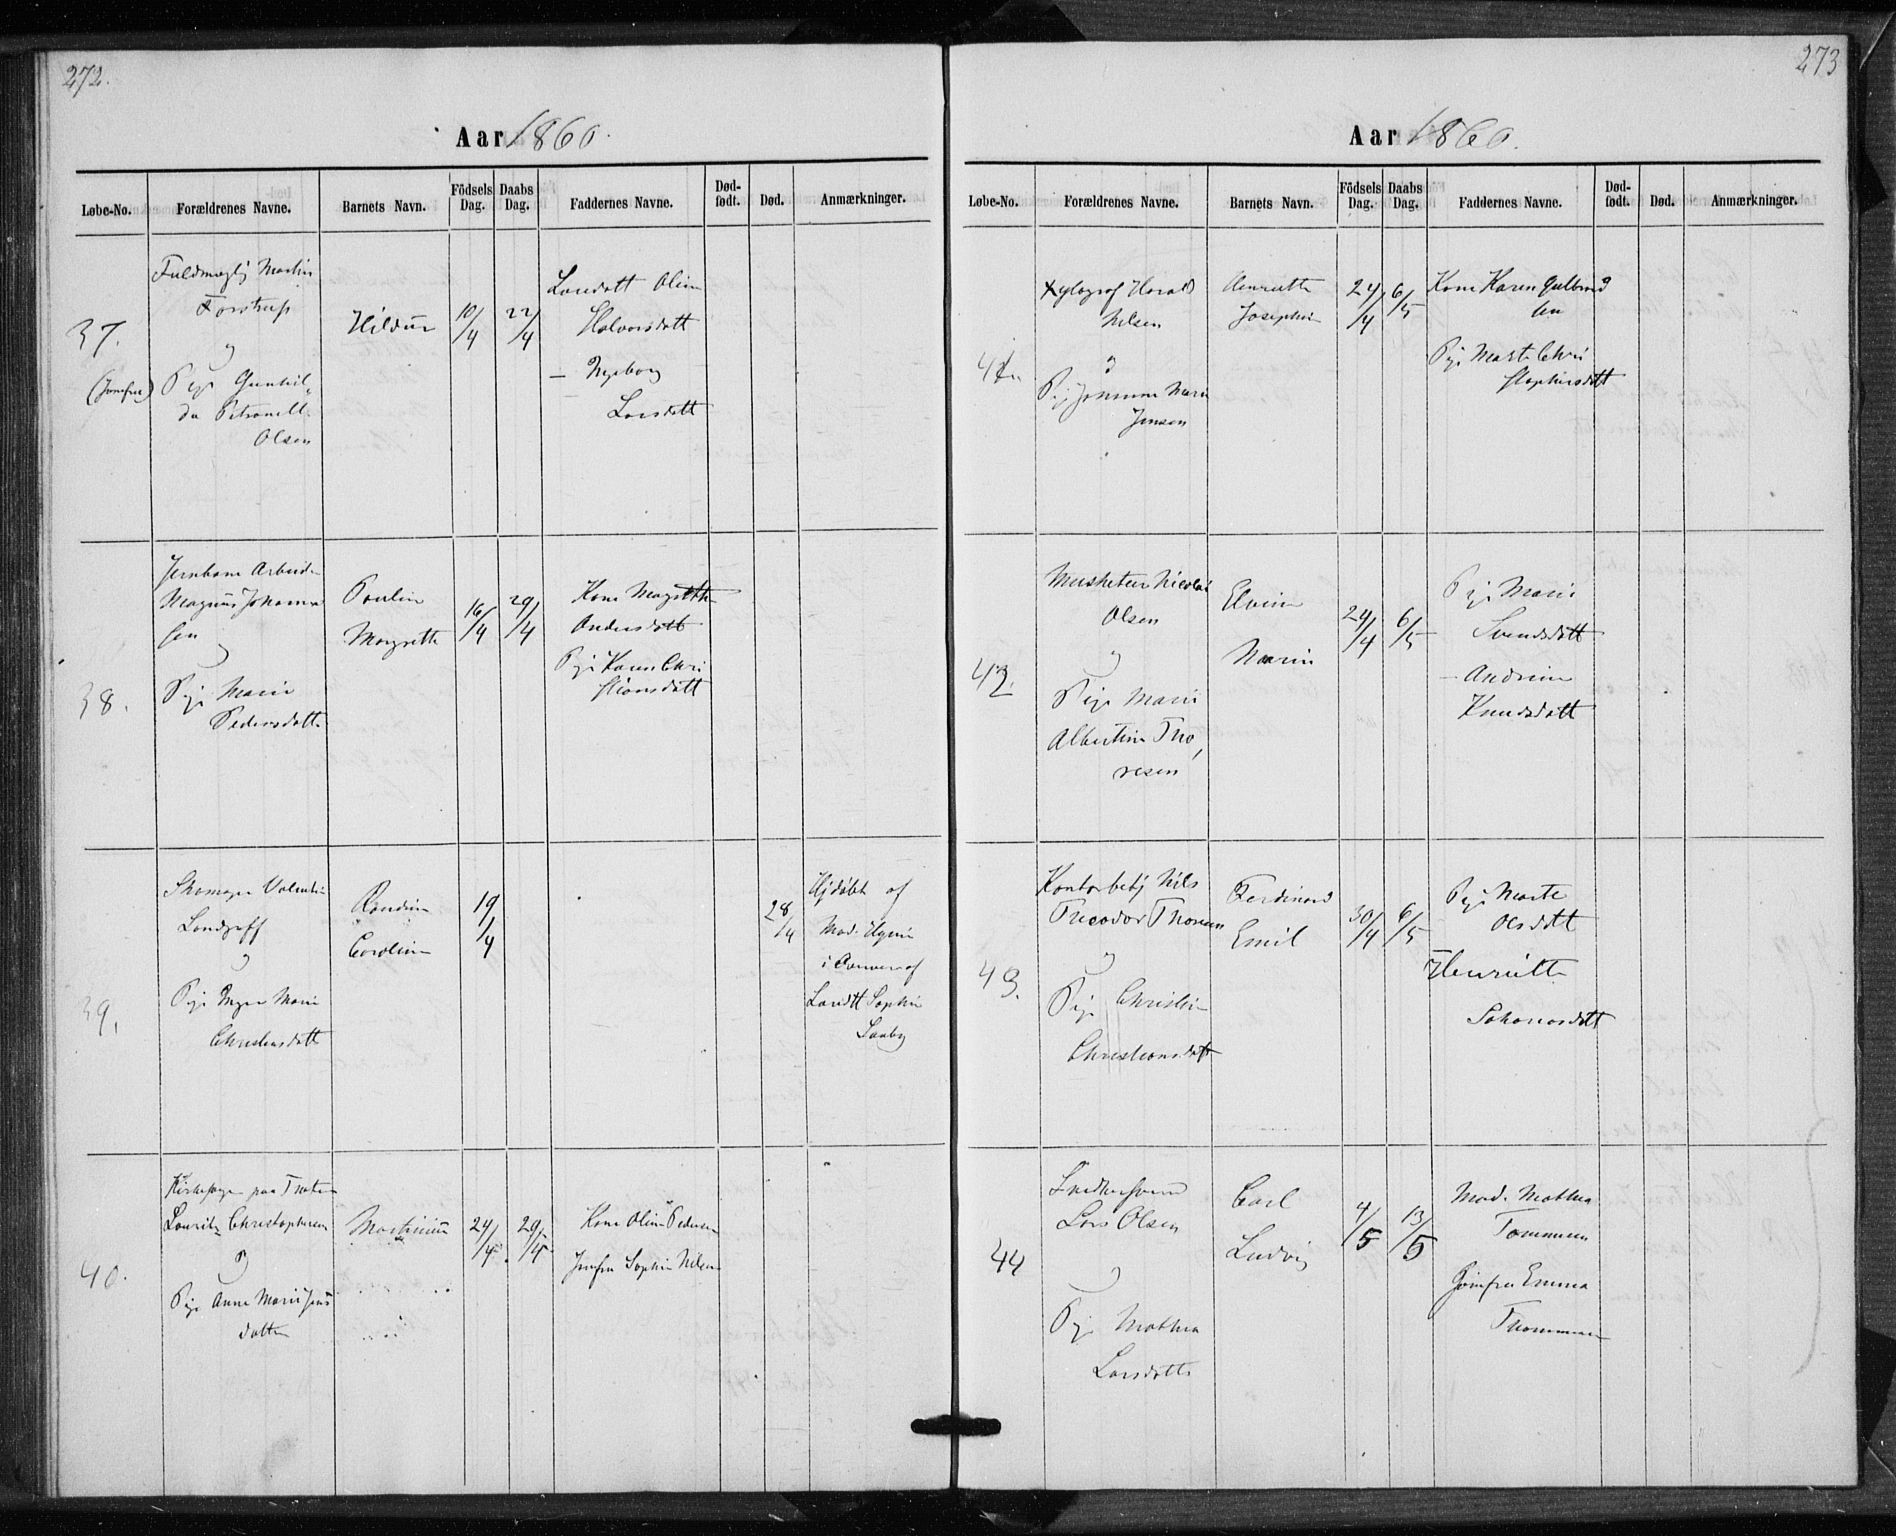 272.
Aar 1860.
Løbe-No. Forældrenes Navne. Barnets Navn. Födsels Dag. Daabs Dag. Faddernes Navne. Død-født. Død. Anmærkninger.
37.
(Jomfru)
Fuldmægtig Martin
Forstrup
og
Pige Gunhil-
da Petronell.
Olsen
Hildur
10/4
22/4
Olin
Halvorsdatt
— Ingeborg
Larsdatt
38.
Jernbane Arbeid.
Magnus Johanne
sen
og
Pige Marie
Pedersdatt
Paulin
Margrethe
16/4
29/4
Kone Magrethe
Andersdatt
Pige Karen Chri
stiansdatt
39.
Skomager Valentin
og
Pige Inger Marie
Christensdatt
Randin
Carolin
19/4
28/4
Hjdøbt af
Mad.
i af
Sophie
40.
paa
Lauritz Christophersen
og
Pige Anne Marie Jens
datter
24/4
29/4
Kone Olin Pedersen
Jomfru Sophie Nilsen
273
Aar 1860.
Løbe-No. Forældrenes Navne. Barnets Navn. Födsels Dag. Daabs Dag. Faddernes Navne. Død-født. Død. Anmærkninger.
41.
Xylograf Harald
Nilsen
og
Pige Marie
Jensen
Henriette
Josephin
24/4
6/5
Kone Karen Gulbrand
sen
Pige Marte Chri
stophersdatt
42.
Musketeer Nicolai
Olsen
og
Pige Marie
Albertine Tho
resen
Elvine
Marie
29/4
6/5
Pige Marie
Svendsdatt
— Andrine
Knudsdatt
43.
Kontorbetj Nils
Theodor Thoresen
og
Pige Christin
Christiansdatt
Ferdinand
Emil
30/4
6/5
Pige Marte
Olsdatt
Henriette
Johansdatt
44
Snedkersvend
Lars Olsen
og
Pige Mathea
Larsdatt
Carl
Ludvig
4/5
13/5
Mad. Mathea
Tommesen
Jomfru Emma
Thommesen